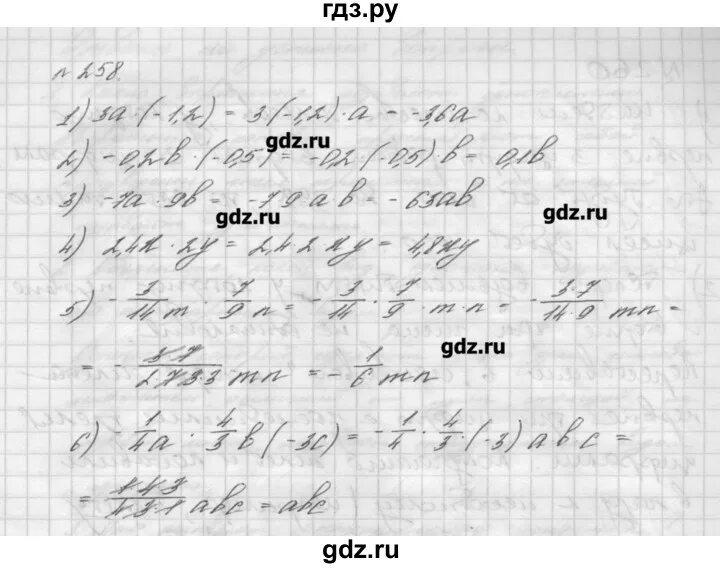 гдз.ру
n 258.
1) 3a · (-1,2) = 3 · (-1,2) · a = -3,6a
gdz.ru
2) -0,2b · (-0,5) = -0,2 · (-0,5) · b = 0,1b
3) -7a · 9b = -7 · 9 · a b = -63ab
gdz.ru
gdz.ru
4) 2,4x · 2y = 2,4 · 2 · xy = 4,8xy
5) - 3/14 m · 7/9 n = - 3/14 · 7/9 · m · n = - 3·7/14·9 mn =
gdz.ru
= - 3·7/2·7·3·3 mn = - 1/6 mn
6) - 1/4 a · 4/3 b (-3c) = - 1/4 · 4/3 · (-3) a b c =
= 1·4·3/4·3·1 abc = abc
gdz.ru